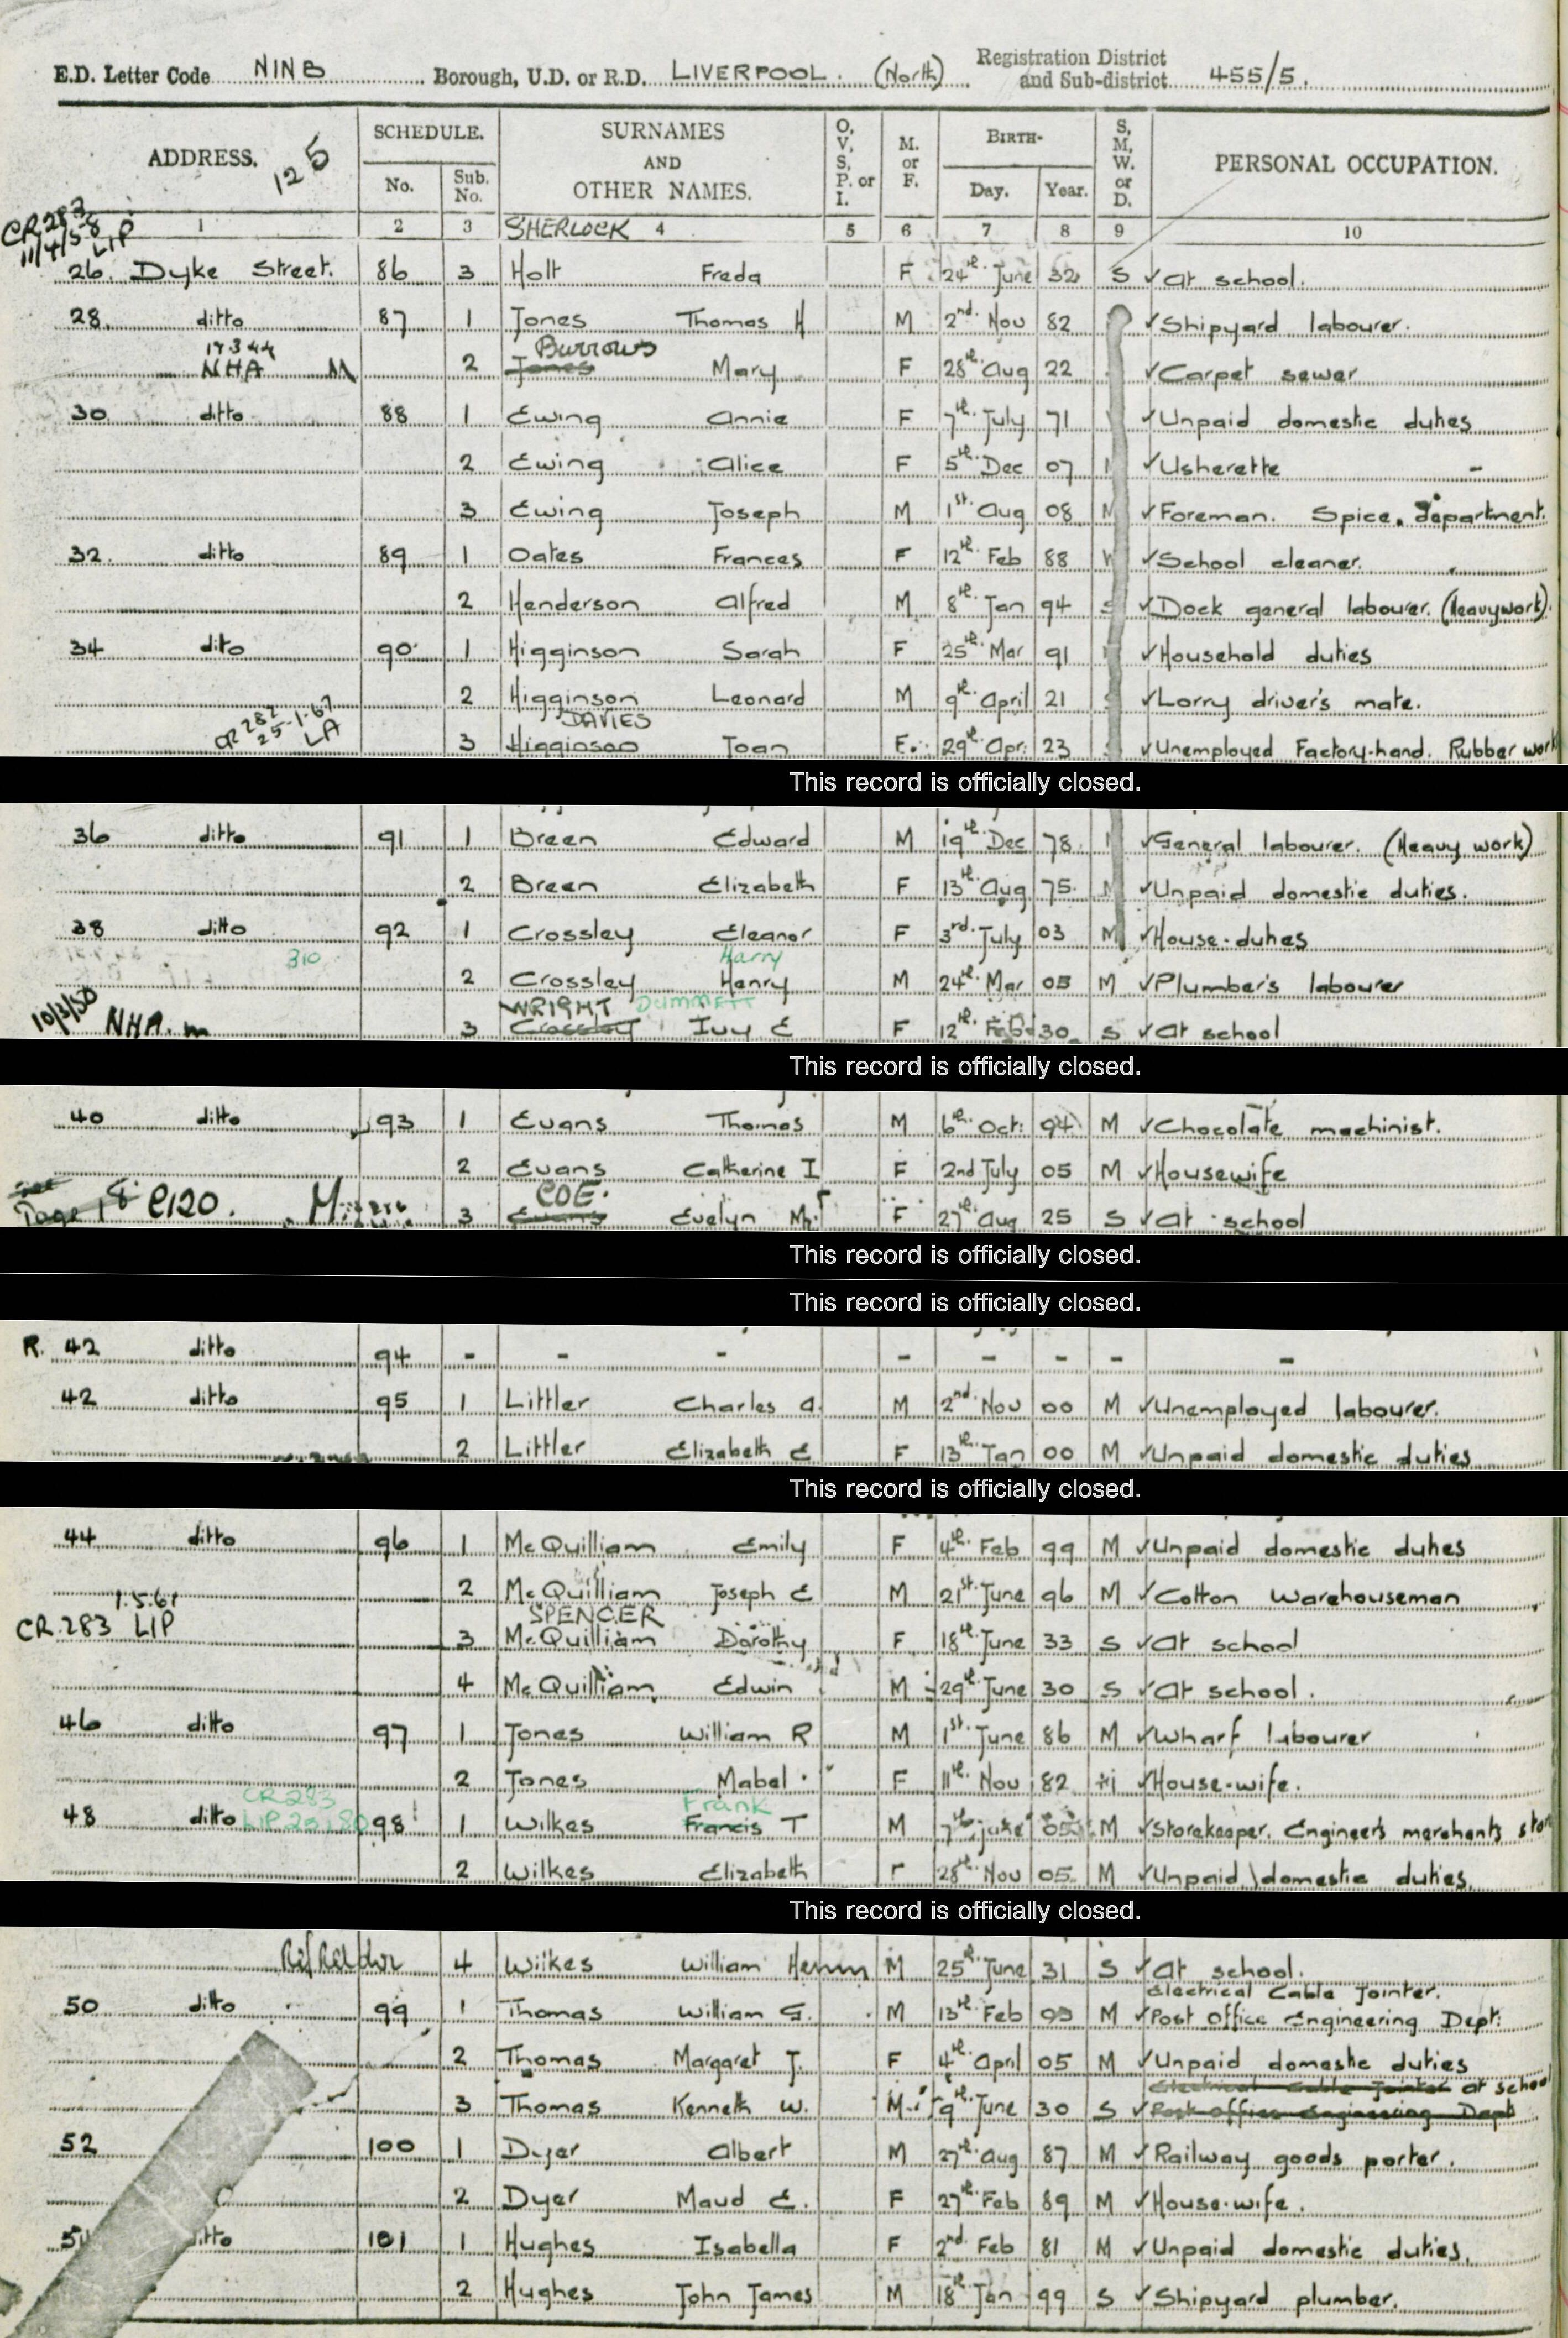 E.D. Letter Code NINB Borough, U.D. or R.D. LIVERPOOL. (North) Registration District and Sub-district 455/5.
ADDRESS. 125 SCHEDULE. No. Sub. No. SURNAMES AND OTHER NAMES. O, V, S, P. or I. M. or F. BIRTH- Day. Year. S, M, W. or D. PERSONAL OCCUPATION.
CR 283
11/4/58 LIP
1 2 3 SHERLOCK 4 5 6 7 8 9 10
26. Dyke Street. 86 3 Holt Freda F 24th June 32 S ✓At school.
28. ditto 87 1 Jones Thomas H M 2nd Nov 82 ✓Shipyard labourer.
Burrows
NHA M 2 Jones Mary F 28th Aug 22 ✓Carpet sewer
30 ditto 88 1 Ewing Annie F 7th July 71 ✓Unpaid domestic duties
2 Ewing Alice F 5th Dec 07 ✓Usherette -
3 Ewing Joseph M 1st Aug 08 M ✓Foreman. Spice. department.
32. ditto 89 1 Oates Frances F 12th Feb 88 W ✓School cleaner.
2 Henderson Alfred M 8th Jan 94 S ✓Dock general labourer. (Heavywork).
34 dito 90 1 Higginson Sarah F 25th Mar 91 ✓Household duties
2 Higginson Leonard M 9th April 21 ✓Lorry driver's mate.
CR 282 25-1-67 LA DAVIES
3 Higginson Joan F. 29th Apr: 23 ✓Unemployed Factory-hand. Rubber work
This record is officially closed.
36 ditto 91 1 Breen Edward M 19th Dec 78 ✓General labourer. (Heavy work)
2 Breen Elizabeth F 13th Aug 75 M ✓Unpaid domestic duties.
38 ditto 92 1 Crossley Eleanor F 3rd July 03 M ✓House-duties
310 Harry
2 Crossley Henry M 24th Mar 05 M ✓Plumber's labourer
10/3/50 NHA. m WRIGHT DUMMETT
3 Crossley Ivy E F 12th Feb 30 S ✓At school
This record is officially closed.
40 ditto 93 1 Evans Thomas M 6th Oct: 94 M ✓Chocolate machinist.
2 Evans Catherine I F 2nd July 05 M ✓Housewife
COE.
Page 18 C120. M. 3 Evans Evelyn M. F 27th Aug 25 S ✓At school
This record is officially closed.
This record is officially closed.
R. 42 ditto 94 - - - - - - - -
42 ditto 95 1 Littler Charles A. M 2nd Nov 00 M ✓Unemployed labourer.
2 Littler Elizabeth E F 13th Jan 00 M ✓Unpaid domestic duties
This record is officially closed.
44 ditto 96 1 McQuilliam Emily F 4th Feb 99 M ✓Unpaid domestic duties
2 McQuilliam Joseph E M 21st June 96 M ✓Cotton Warehouseman
1.5.61 SPENCER
CR.283 LIP 3 McQuilliam Dorothy F 18th June 33 S ✓At school
4 McQuilliam Edwin M 29th June 30 S ✓At school.
46 ditto 97 1 Jones William R M 1st June 86 M ✓Wharf labourer
2 Jones Mabel F 11th Nov 82 M ✓House-wife.
CR283 Frank
48 ditto LIP 98 1 Wilkes Francis T M 7th June 05 M ✓Storekeeper. Engineers merchants store
2 Wilkes Elizabeth F 28th Nov 05 M ✓Unpaid domestic duties.
This record is officially closed.
4 Wilkes William Henry M 25th June 31 S ✓At school.
Electrical Cable Jointer.
50 ditto 99 1 Thomas William G. M 13th Feb 03 M ✓Post Office Engineering Dept:
2 Thomas Margaret J. F 4th April 05 M ✓Unpaid domestic duties
Electrical Cable Jointer at school
3 Thomas Kenneth W. M 9th June 30 S ✓Post Office Engineering Dept
52 100 1 Dyer Albert M 27th Aug 87 M ✓Railway goods porter.
2 Dyer Maud E. F 27th Feb 89 M ✓House-wife.
54 ditto 101 1 Hughes Isabella F 2nd Feb 81 M ✓Unpaid domestic duties.
2 Hughes John James M 18th Jan 99 S ✓Shipyard plumber.